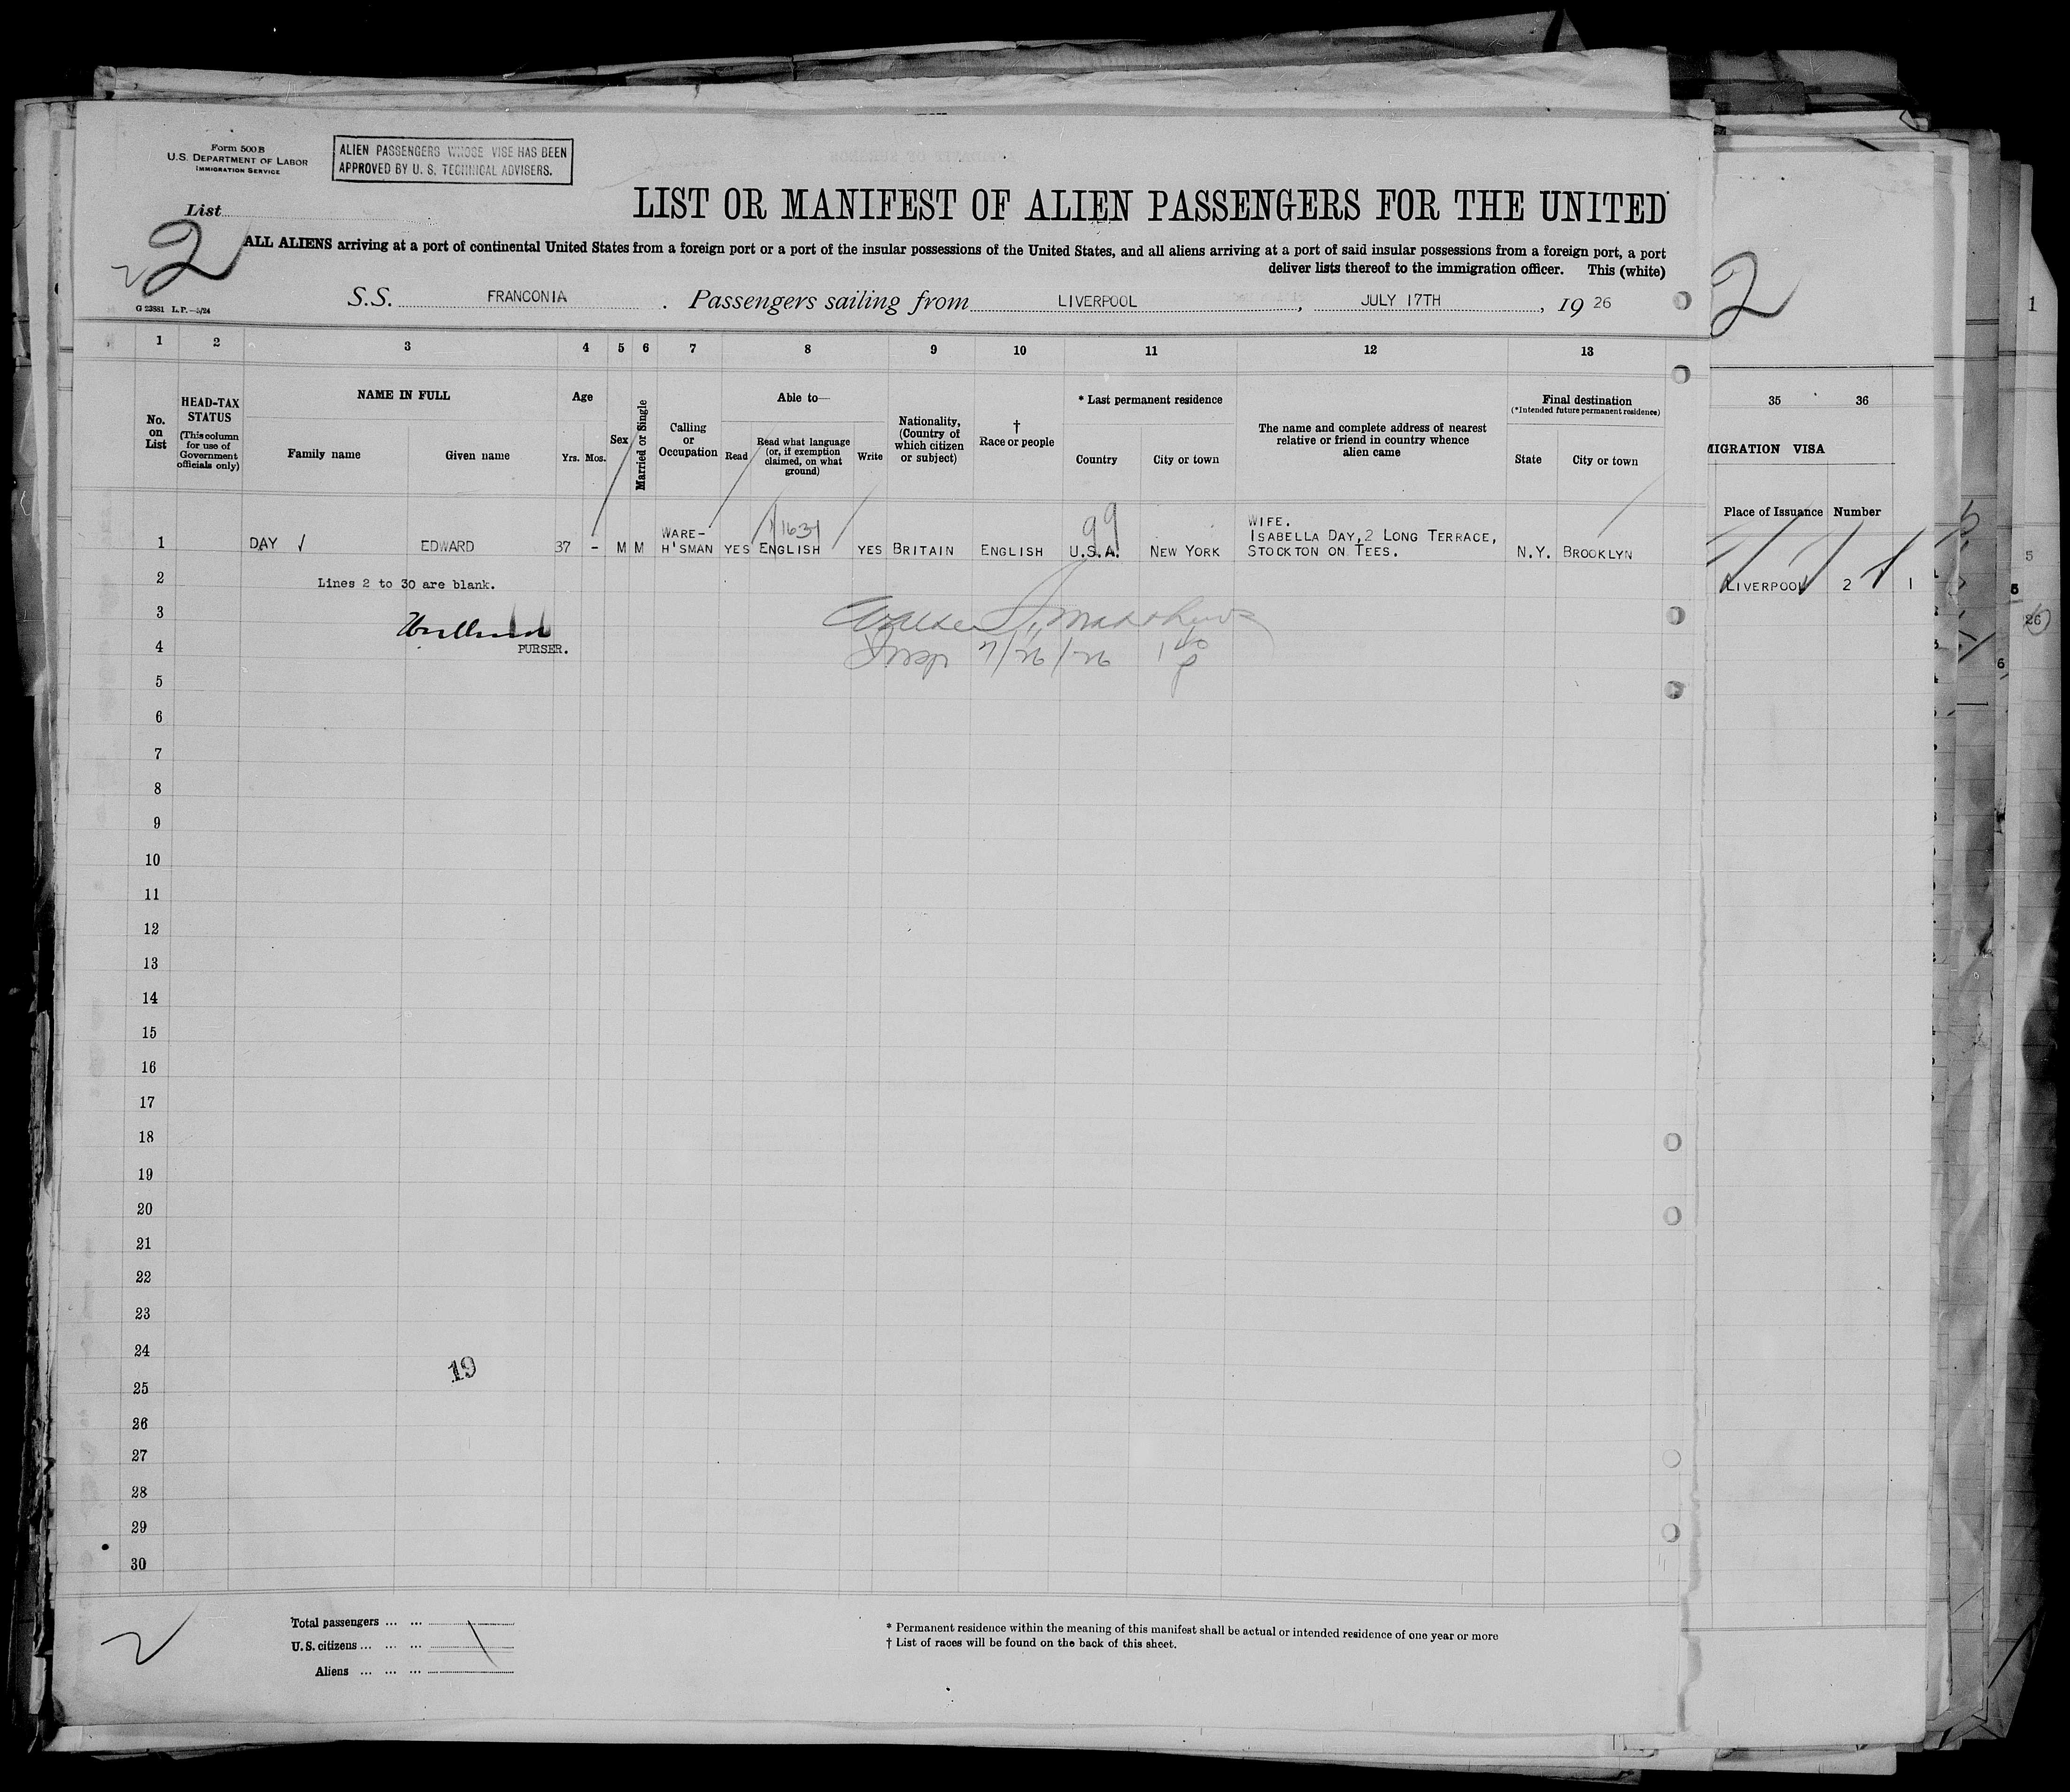 Form 500B
U.S. DEPARTMENT OF LABOR
IMMIGRATION SERVICE
ALIEN PASSENGERS WHOSE VISE HAS BEEN
APPROVED BY U. S. TECHNICAL ADVISERS.
List
2
LIST OR MANIFEST OF ALIEN PASSENGERS FOR THE UNITED
ALL ALIENS arriving at a port of continental United States from a foreign port or a port of the insular possessions of the United States, and all aliens arriving at a port of said insular possessions from a foreign port, a port
deliver lists thereof to the immigration officer. This (white)
S.S. FRANCONIA . Passengers sailing from LIVERPOOL , JULY 17TH , 19 26
G 23881 L.P.—5/24
1 2 3 4 5 6 7 8 9 10 11 12 13
No. on List
HEAD-TAX STATUS
(This column for use of Government officials only)
NAME IN FULL
Family name Given name
Age
Yrs. Mos.
Sex
Married or Single
Calling or Occupation
Able to—
Read
Read what language (or, if exemption claimed, on what ground)
Write
Nationality, (Country of which citizen or subject)
† Race or people
* Last permanent residence
Country City or town
The name and complete address of nearest relative or friend in country whence alien came
Final destination
(*Intended future permanent residence)
State City or town
1 DAY EDWARD 37 - M M WARE-H'SMAN YES ENGLISH YES BRITAIN ENGLISH U.S.A. NEW YORK WIFE. ISABELLA DAY, 2 LONG TERRACE, STOCKTON ON TEES. N.Y. BROOKLYN
99
2 Lines 2 to 30 are blank.
3
PURSER.
4 Insp 7/26/26
5
6
7
8
9
10
11
12
13
14
15
16
17
18
19
20
21
22
23
24
19
25
26
27
28
29
30
Total passengers ... ...
U.S. citizens ... ... ...
Aliens ... ... ...
* Permanent residence within the meaning of this manifest shall be actual or intended residence of one year or more
† List of races will be found on the back of this sheet.
2
35 36
MIGRATION VISA
Place of Issuance Number
LIVERPOOL 2 1
1
5
26
6